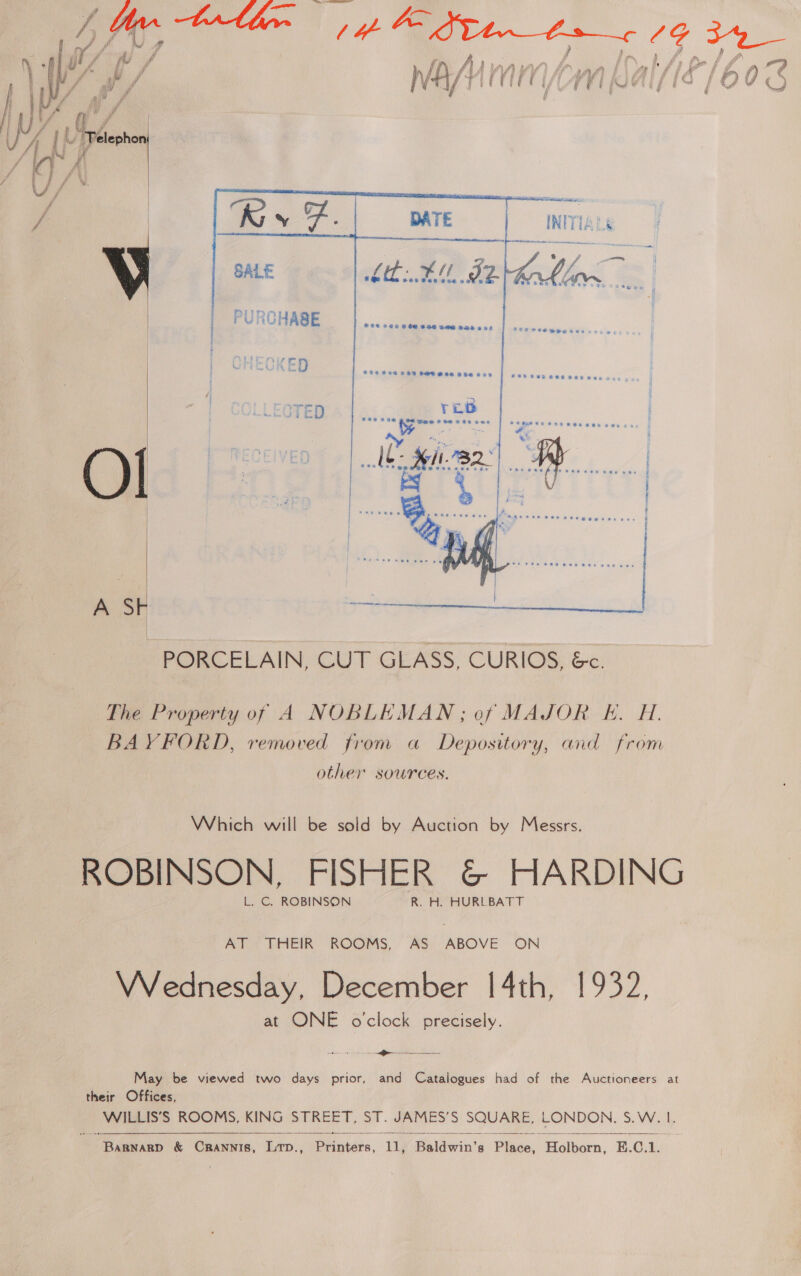 14th December 1932
WA/HMM/Em/Sal/18/603
Telephon
R & F. DATE INITIALS
W
SALE
PURCHASE
CHECKED
COLLECTED
Ol
RECEIVED
A SHERATON INLAID
A GRAND PIANO
PORCELAIN, CUT GLASS, CURIOS, &c.
The Property of A NOBLEMAN; of MAJOR E. H.
BAYFORD, removed from a Depository, and from
other sources.
Which will be sold by Auction by Messrs.
ROBINSON, FISHER & HARDING
L. C. ROBINSON R. H. HURLBATT
AT THEIR ROOMS, AS ABOVE ON
Wednesday, December 14th, 1932,
at ONE o'clock precisely.
May be viewed two days prior, and Catalogues had of the Auctioneers at
their Offices,
WILLIS'S ROOMS, KING STREET, ST. JAMES'S SQUARE, LONDON. S.W. 1.
Barnard & Crannis, Ltd., Printers, 11, Baldwin's Place, Holborn, E.C.1.